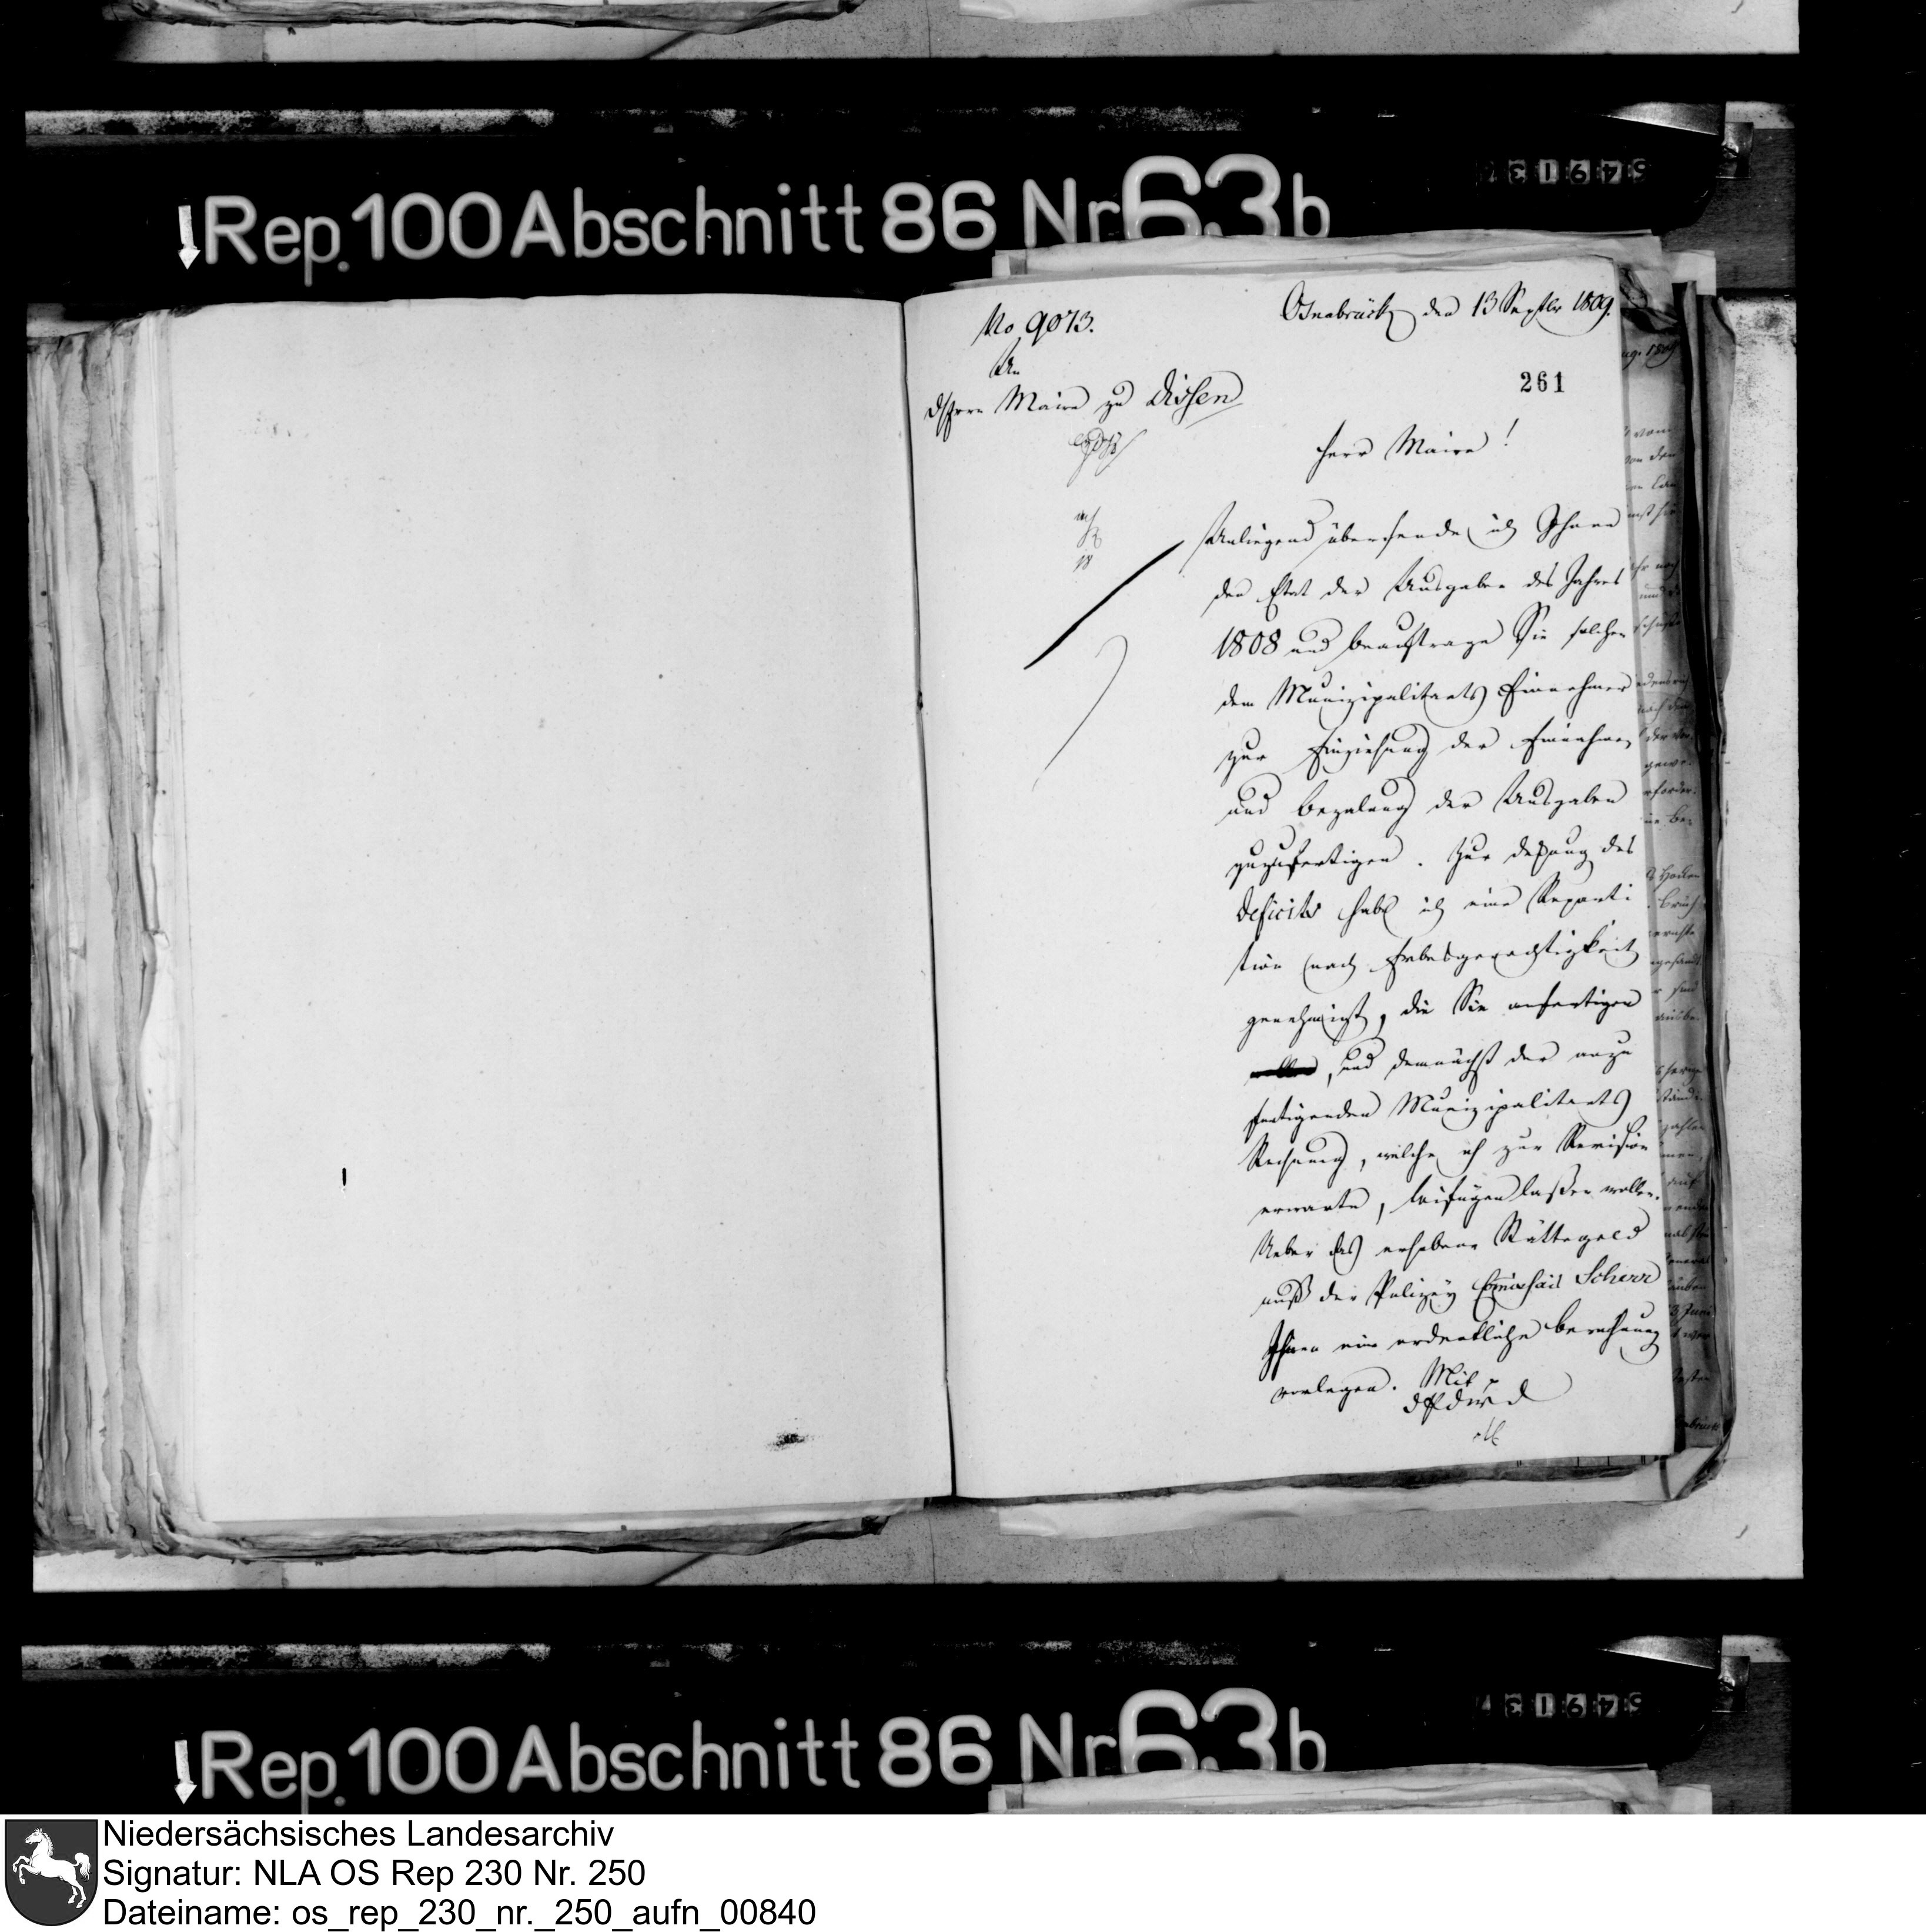 Rep. 100 Abschnitt 86 Nr 63b
No 9073.
Osnabrück den 13 Septbr 1809.
An
den Herrn Maire zu Dissen
261
Herr Maire!
Anliegend übersende ich Ihnen
den Etat der Ausgaben des Jahres
1808 und beauftrage Sie solchen
dem Munizipalitaets Einnehmer
zur Einziehung der Einnahmen
und Bezalung der Ausgaben
zuzufertigen. Zur Deckung des
Deficits habe ich eine Reparti
tion nach Erbesgerechtigkeit
genehmigt, die Sie anfertigen
, und demnächst der anzu
fertigenden Munizipalitaets
Rechnung, welche ich zur Revision
erwarte, beifügen laßen wollen.
Ueber das erhobene Stättegeld
muß der Polizey Commissair Scherr
Ihnen eine ordentliche Berechnung
vorlegen. Mit
Rep. 100 Abschnitt 86 Nr 63b
Niedersächsisches Landesarchiv
Signatur: NLA OS Rep 230 Nr. 250
Dateiname: os_rep_230_nr._250_aufn_00840